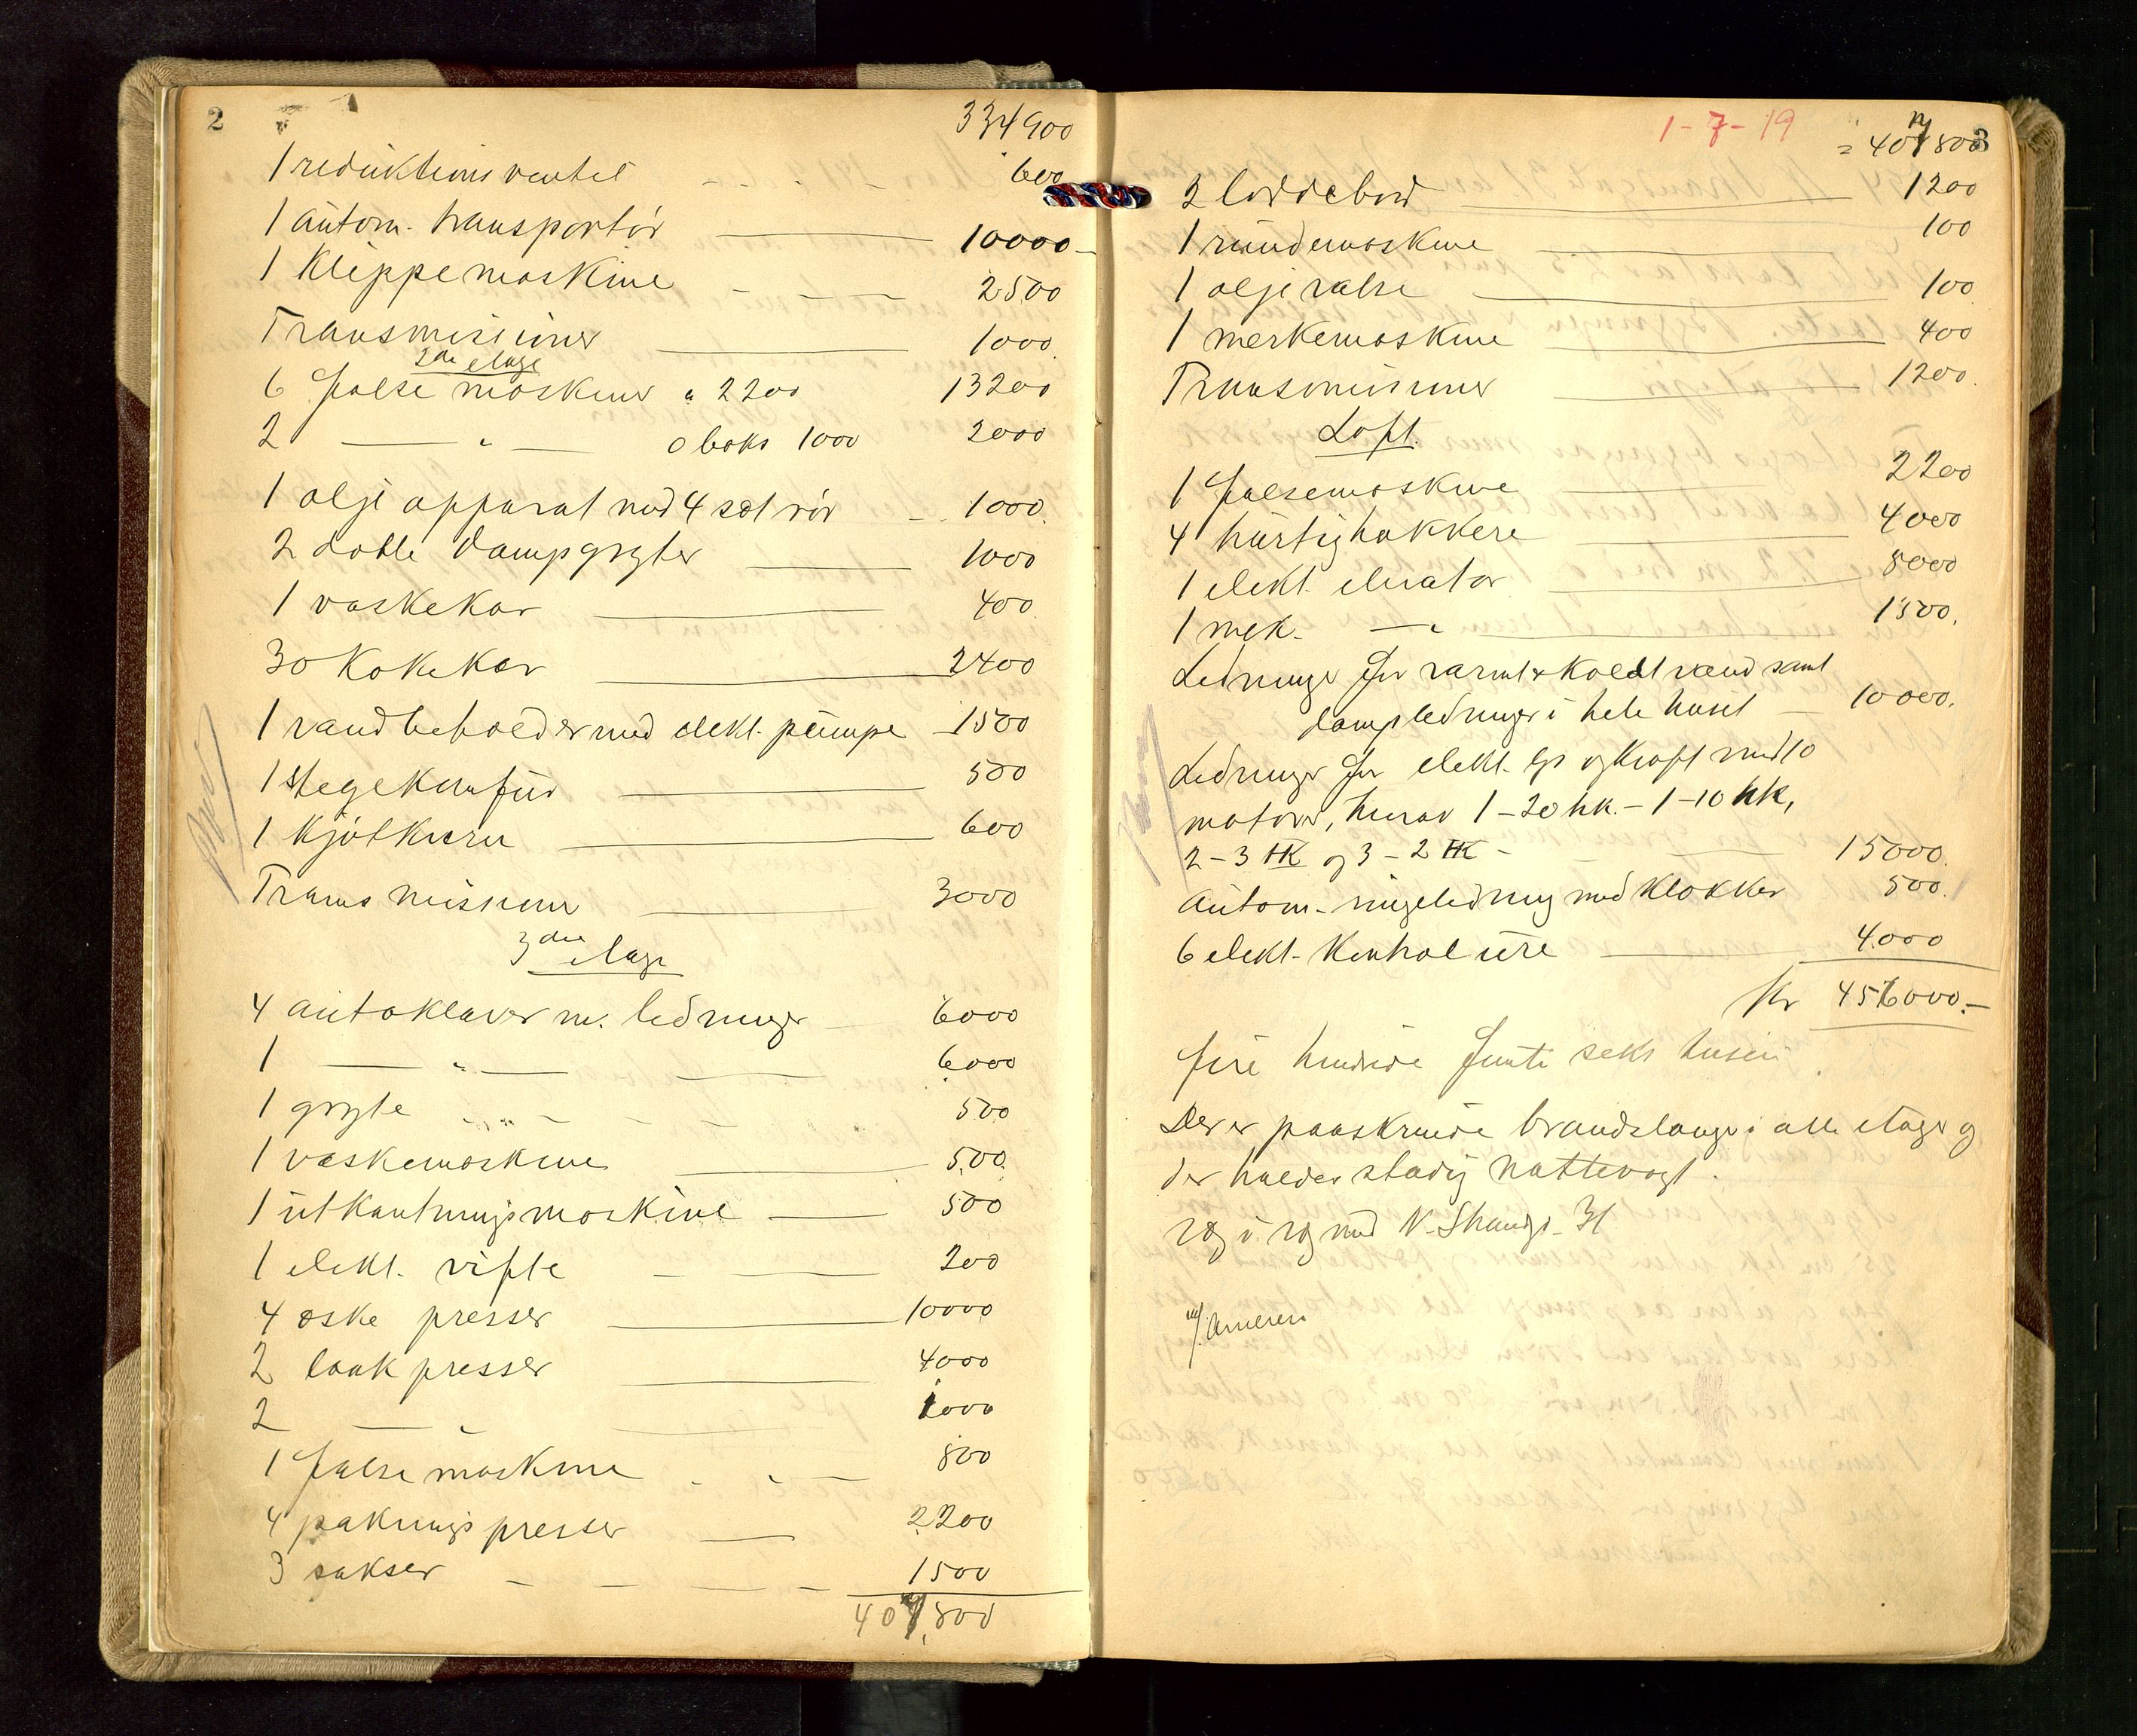 2
334900
1 reduktionsventil - - - 600
1 autom. transportør 10000-
1 Klippemaskine - - - 2500
Transmisioner 1000.
2de etage
6 false maskiner a 2200 13200
2 — " — a boks 1000 2000
1 olje apparat med 4 sæt rør - - 1000.
2 doble dampgryter 1000
1 vaskekar 400
30 Kokekar 2400
1 vandbeholder med elekt. pumpe 1500
1 stegekomfür 500
1 kjøtkværn 600
Transmisioner 3000
3die etage
4 autoklaver m. ledninger 6000
1 — " — 6000
1 gryte - " - - - 500
1 vaskemaskine 500.
1 utkantningsmaskine 500
1 elekt. vifte 200
4 æske presser 10000
2 laak presser 4000
2 — " 1000
1 false maskine - - - 800
4 paknings presser 2200
3 sakser - - - - 1500
407,800
1-7-19
3
= 407800
2 loddebord 1200
1 rundemaskine 100
1 oljevalse 100
1 merkemaskine 400
Transmisioner 1200.
Loft.
1 falsemaskine 2200
4 hurtighakkere 4000
1 elekt. elevator 8000
1 mek. — " 1500.
Ledninger for varmt & koldt vand samt
dampledninger i hele huset 10000.
Ledninger for elekt. lys og kraft med 10
motorer, herav 1-20 hk. - 1-10 hk,
2-3 HK og 3-2 HK - 15000.
Autom. ringeledning med klokker 500.
6 elekt. kontrol ure 4000
Kr 456000.-
fire hundrede femti seks tusen
Der er paaskruede brandslanger i alle etager og
der holdes stadig nattevagt.
ryg i ryg med N. Strandg. 31